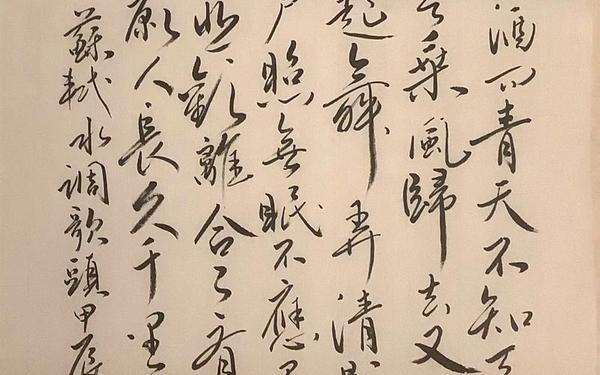 酒問青天不知天
乘風歸去又
起舞弄清影
戶照無眠不應
悲歡離合月有
願人長久千里
蘇軾水調歌頭甲辰